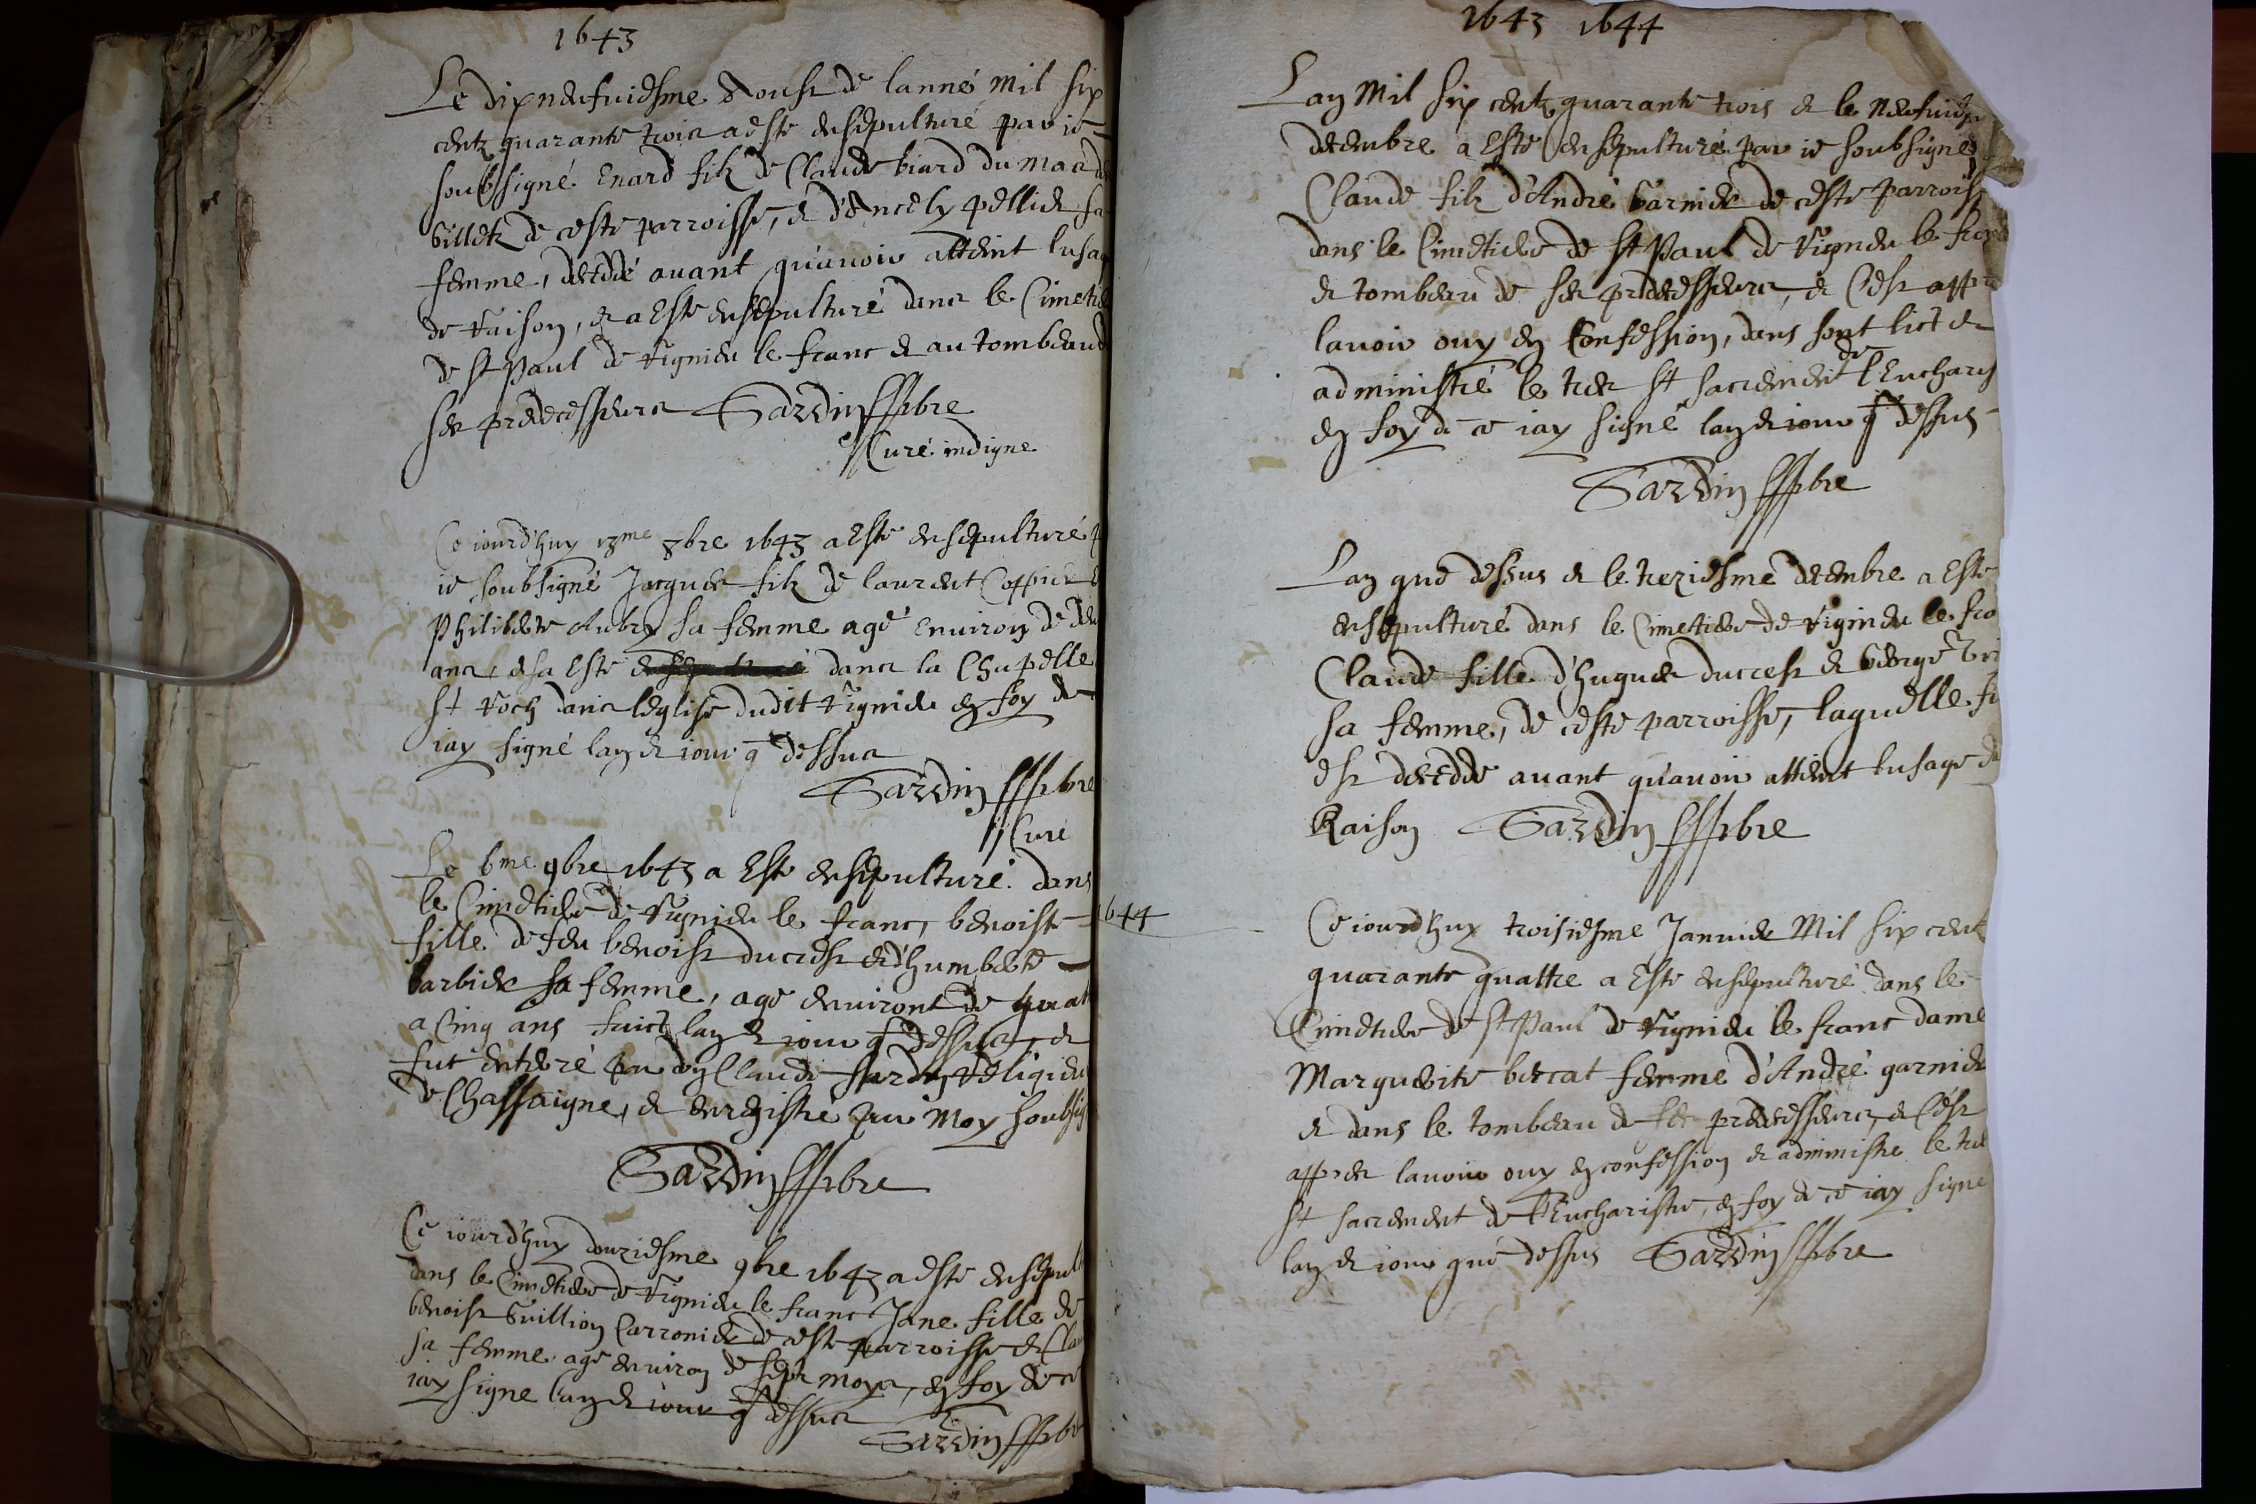 1643
Le dixneufuiesme Aoust de lanné mil six
centz quarante trois a esté ensepulturé par ie
soubsigné Enard filz de Claude biard du mas de
villetz de ceste parroisse, et d'Ancely pellier sa
femme, decedé auant qu'auoir atteint lusag
de raison, et a Esté ensepulturé dans le Cimetie
de st Paul de Vignieu le franc et au tombeau d
ses predecesseurs Sardin pbre
Curé indigne
Ce iourd'huy 8bre 1643 a Esté ensepulturé p
ie soubsigné Jacques filz de laurent Coppier
Philiberte Aubry sa femme agé Enuiron de deu
ans, et a Esté dans la Chapelle
st roch dans leglise dudit Vignieu en foy de
iay signé lan et iour q dessus
Sardin pbre
Curé
Le 6me 9bre 1643 a Esté ensepulturé dans
le Cimetiere de Vignieu le franc, benoiste
fille de feu benoist ducrest et d'humberte
barbier sa femme, age enuiront de quat
a Cinq ans faict lan et iour q dessus, et
fut enterré par don Claude Sardin religieu
de Chassaigne, et enregistré par Moy soubsig
Sardin pbre
Ce iourd'huy douziesme 9bre 1643 a esté ensepult
dans le Cimetiere de Vignieu le franc Jane fille de
benoist Guillion Carronier de ceste parroisse et Clau
sa femme agé enuiron de sept moys, en foy de ce
iay signe lan et iour q dessus
Sardin pbre
1643 1644
Lan Mil six centz quarante trois et le neufuiesm
decembre a Esté ensepulturé par ie soubsigné
Claude filz d'André Garnier de ceste parroiss
dans le Cimetiere de st Paul de Vignieu le franc
et tombeau de ses predecesseurs, et C'est appre
lauoir ouy en Confession, dans sont lict et
administré le tres st sacrement de l'Eucharis
en foy de ce iay signé lan et iour q dessus
Sardin pbre
Lan que dessus et le treziesme decembre a Esté
ensepulturé dans le Cimetiere de Vignieu le fra
Claude fille d'hugues ducrest et George
sa femme, de ceste parroisse, laquelle
est decedde auant qu'auoir atteint lusage de
Raison Sardin pbre
1644
Ce iourd'huy troisiesme Januier Mil six cent
quarante quattre a Esté ensepulturé dans le
Cimetiere de st Paul de Vignieu le franc dame
Marguerite bercat femme d'André garnier
et dans le tombeau de ses predecesseurs, et C'est
appres lauoir ouy en confession et administre le tres
st sacrement de l'Eucharistie, en foy de ce iay signe
lan et iour que dessus Sardin pbre